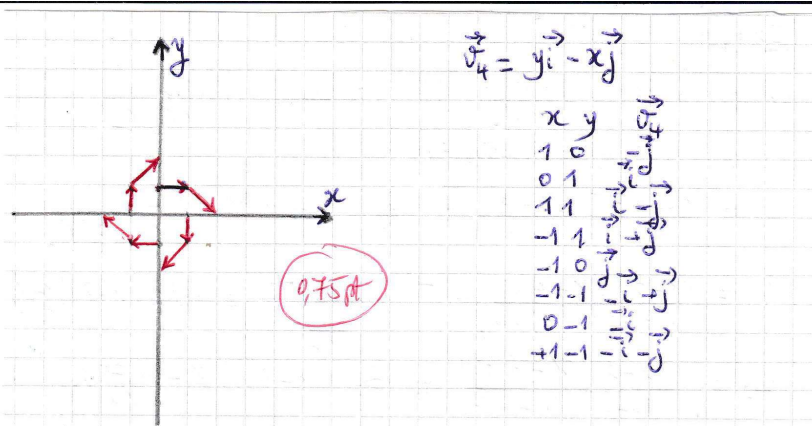 y
x
0,75pt
v⃗₄ = yi⃗ - xj⃗
x y v⃗₄
1 0 -j⃗
0 1 i⃗
1 1 i⃗ - j⃗
-1 1 i⃗ + j⃗
-1 0 j⃗
-1 -1 -i⃗ + j⃗
0 -1 -i⃗
+1 -1 -i⃗ - j⃗